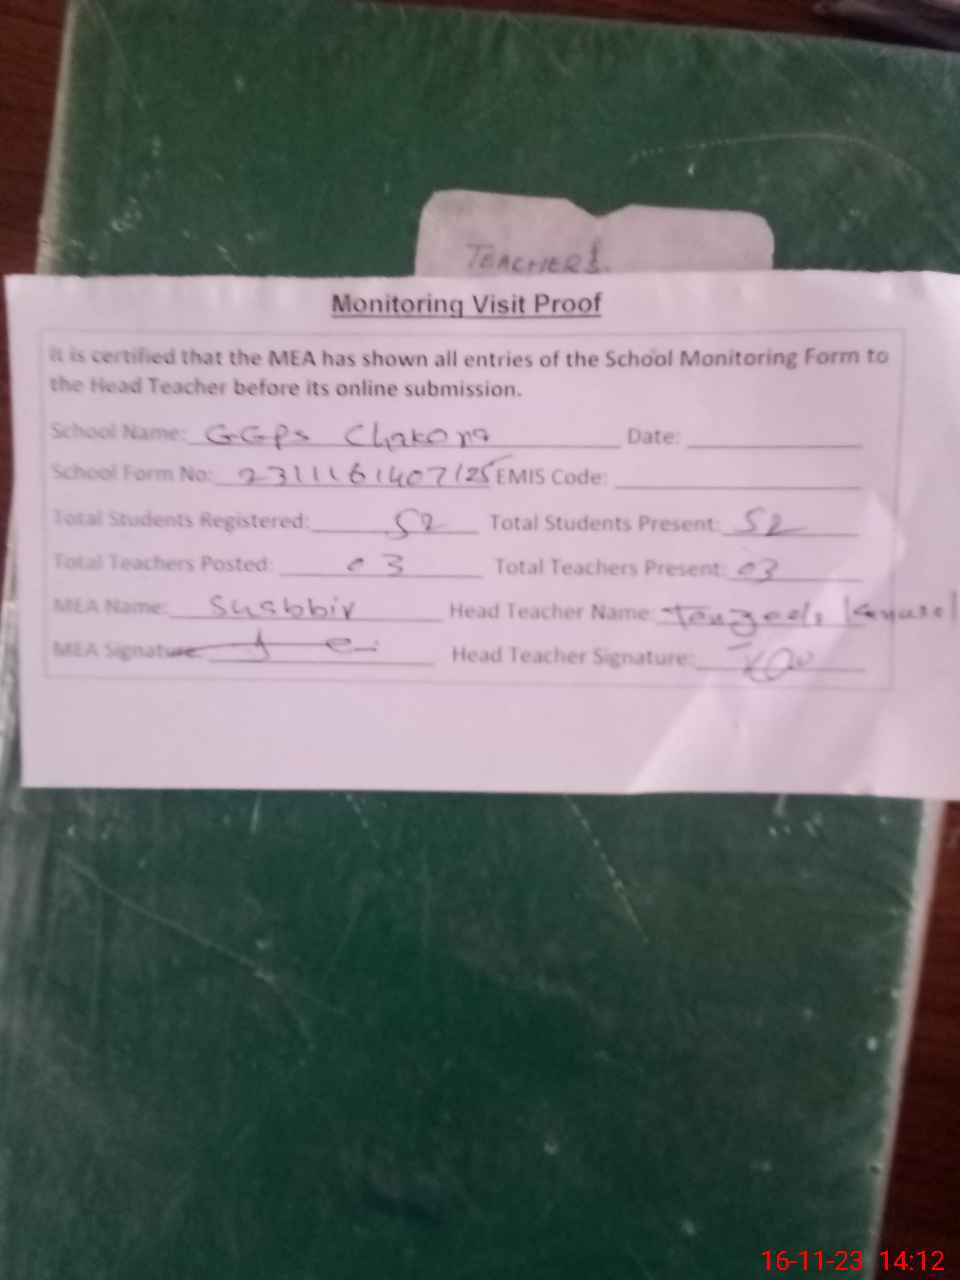 TEACHERS.
Monitoring Visit Proof
It is certified that the MEA has shown all entries of the School Monitoring Form to
the Head Teacher before its online submission.
School Name: GGPS Chakora Date:
School Form No: 2311161407125 EMIS Code:
Total Students Registered: 52 Total Students Present: 52
Total Teachers Posted: 03 Total Teachers Present: 03
MEA Name: Shabbir Head Teacher Name:
MEA Signature: Head Teacher Signature:
16-11-23 14:12